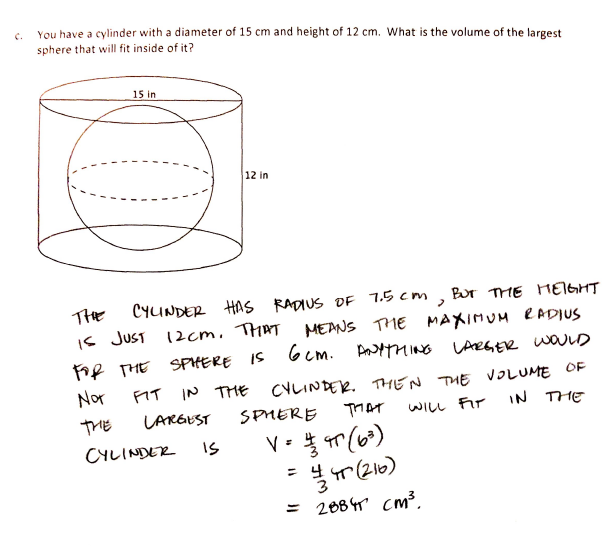 c. You have a cylinder with a diameter of 15 cm and height of 12 cm. What is the volume of the largest
sphere that will fit inside of it?
15 in
12 in
THE CYLINDER HAS RADIUS OF 7.5 cm, BUT THE HEIGHT
IS JUST 12cm. THAT MEANS THE MAXIMUM RADIUS
FOR THE SPHERE IS 6cm. ANYTHING LARGER WOULD
NOT FIT IN THE CYLINDER. THEN THE VOLUME OF
THE LARGEST SPHERE THAT WILL FIT IN THE
CYLINDER IS V = 4/3 π(6³)
= 4/3 π(216)
= 288π cm³.